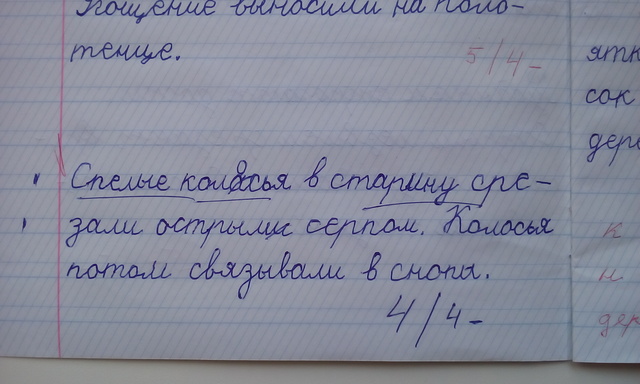 Угощение выносили на поло-
тенце.
5/4-
Спелые колосья в старину сре-
зали острыми серпом. Колосья
потом связывали в снопы.
4/4-
ятн
сок
дере
к
н
дер